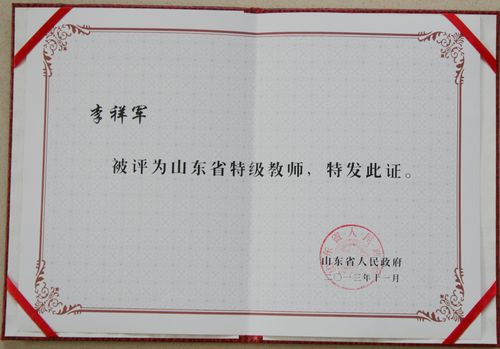 李祥军
被评为山东省特级教师，特发此证。
山东省人民政府
二〇一三年十一月